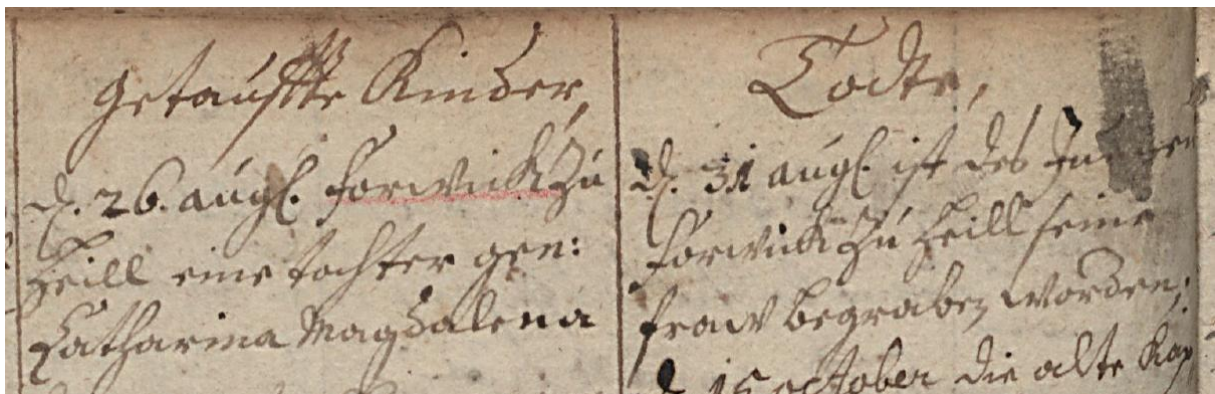 Getauffte Kinder,
d. 26. augs. Forwick zu
Heill eine tochter gen:
Catharina Magdalena
Todte,
d. 31 augs. ist des Jungen
Forwick zu Heill seine
fraw begraben worden,
d 15 october die alte